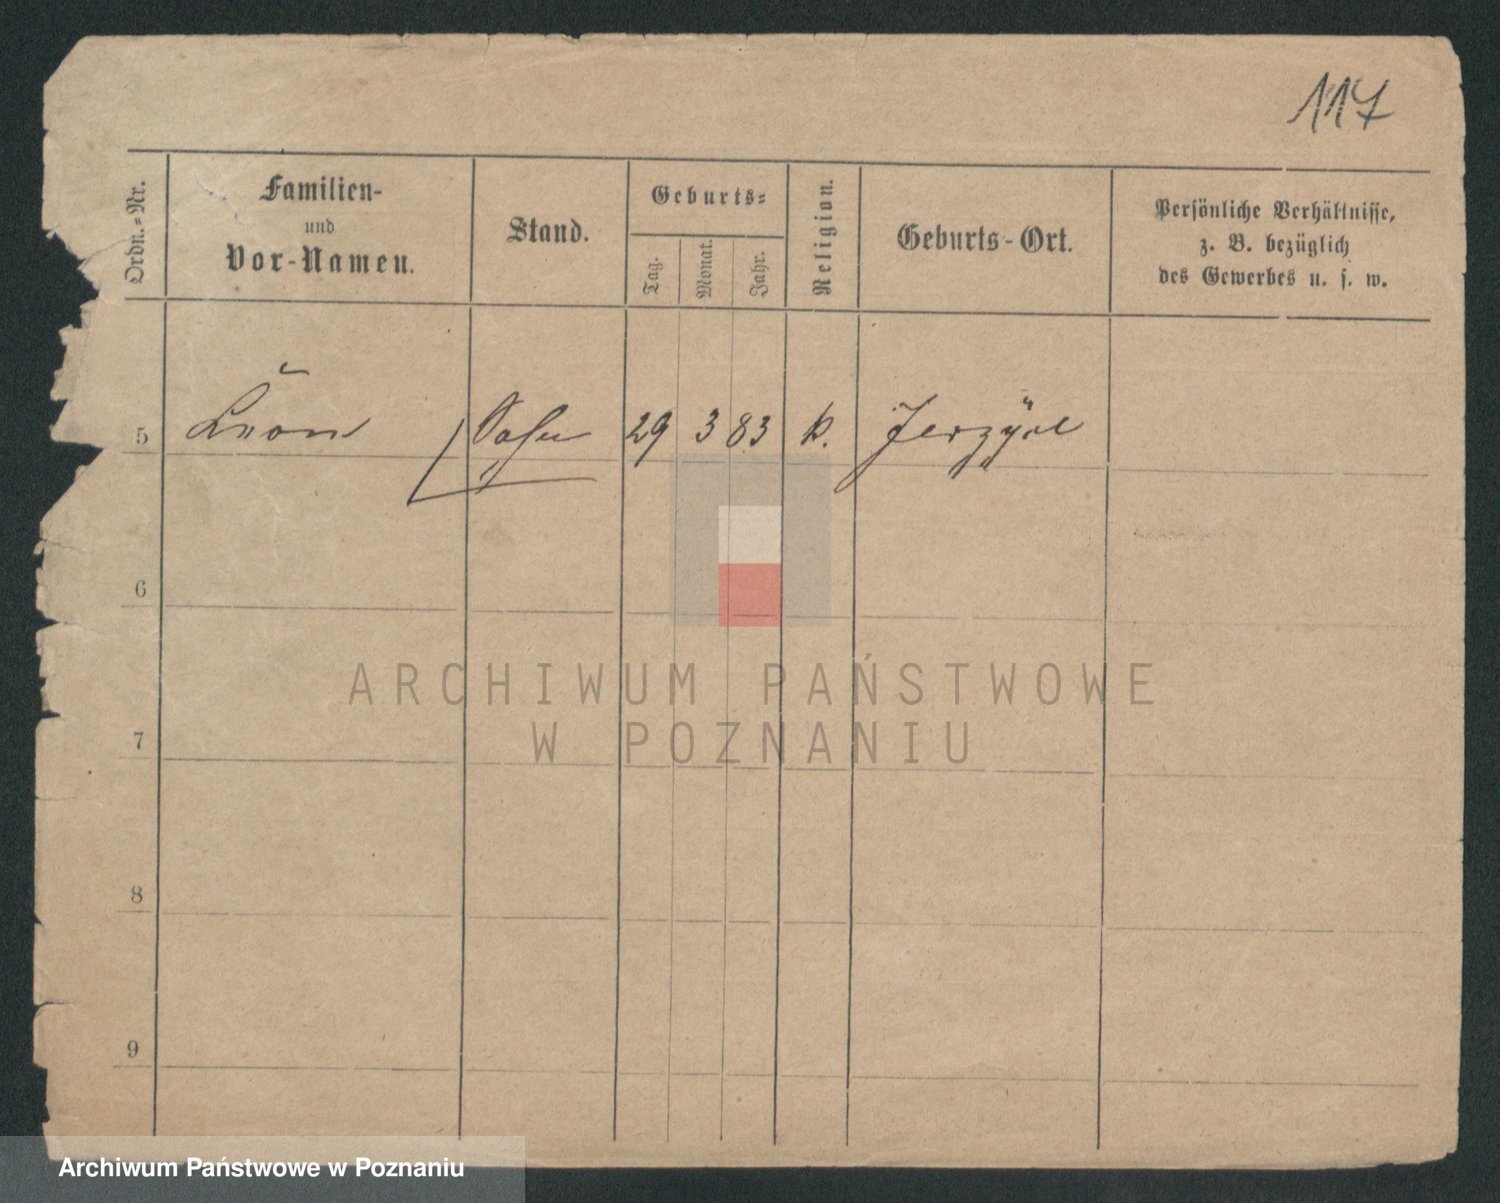 117
Ordn.=Nr.
Familien-
und
Vor-Namen.
Stand.
Geburts=
Tag.
Monat.
Jahr.
Religion.
Geburts-Ort.
Persönliche Verhältnisse,
z. B. bezüglich
des Gewerbes u. s. w.
5 Leon Sohn 29 3 83 k.
6
7
8
9
ARCHIWUM PAŃSTWOWE
W POZNANIU
Archiwum Państwowe w Poznaniu